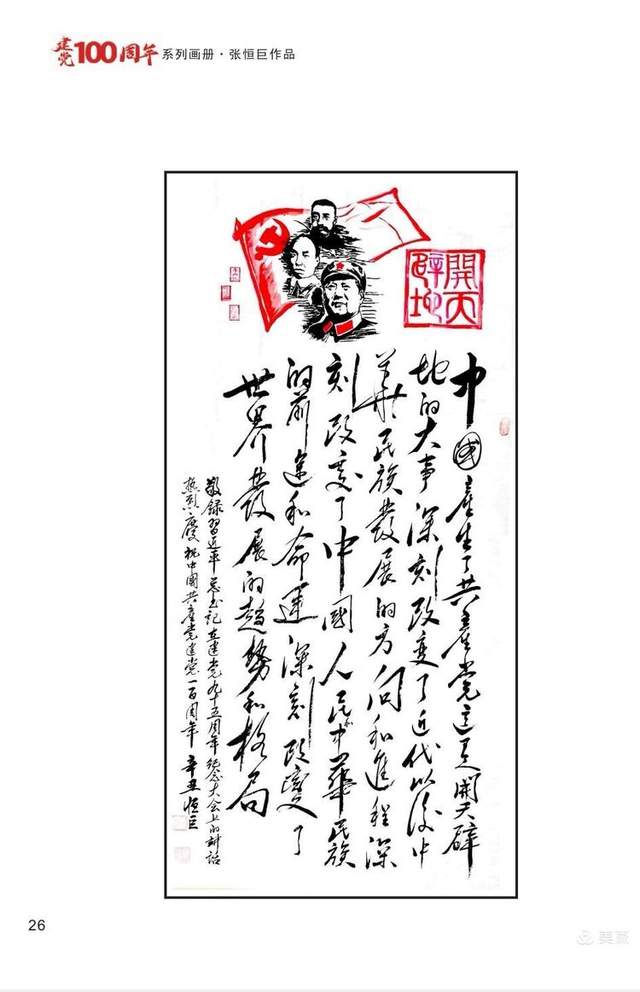 建党100周年 系列画册·张恒巨作品
開天辟地
中國產生了共產党這是開天辟
地的大事深刻改变了近代以後中
華民族發展的方向和進程深
刻改变了中國人民中華民族
的前途和命運深刻改變了
世界發展的趨勢和格局
敬録習近平总书记在建党九十五周年纪念大会上的讲话
热烈慶祝中國共產党建党一百周年 辛丑恒巨
26
美篇